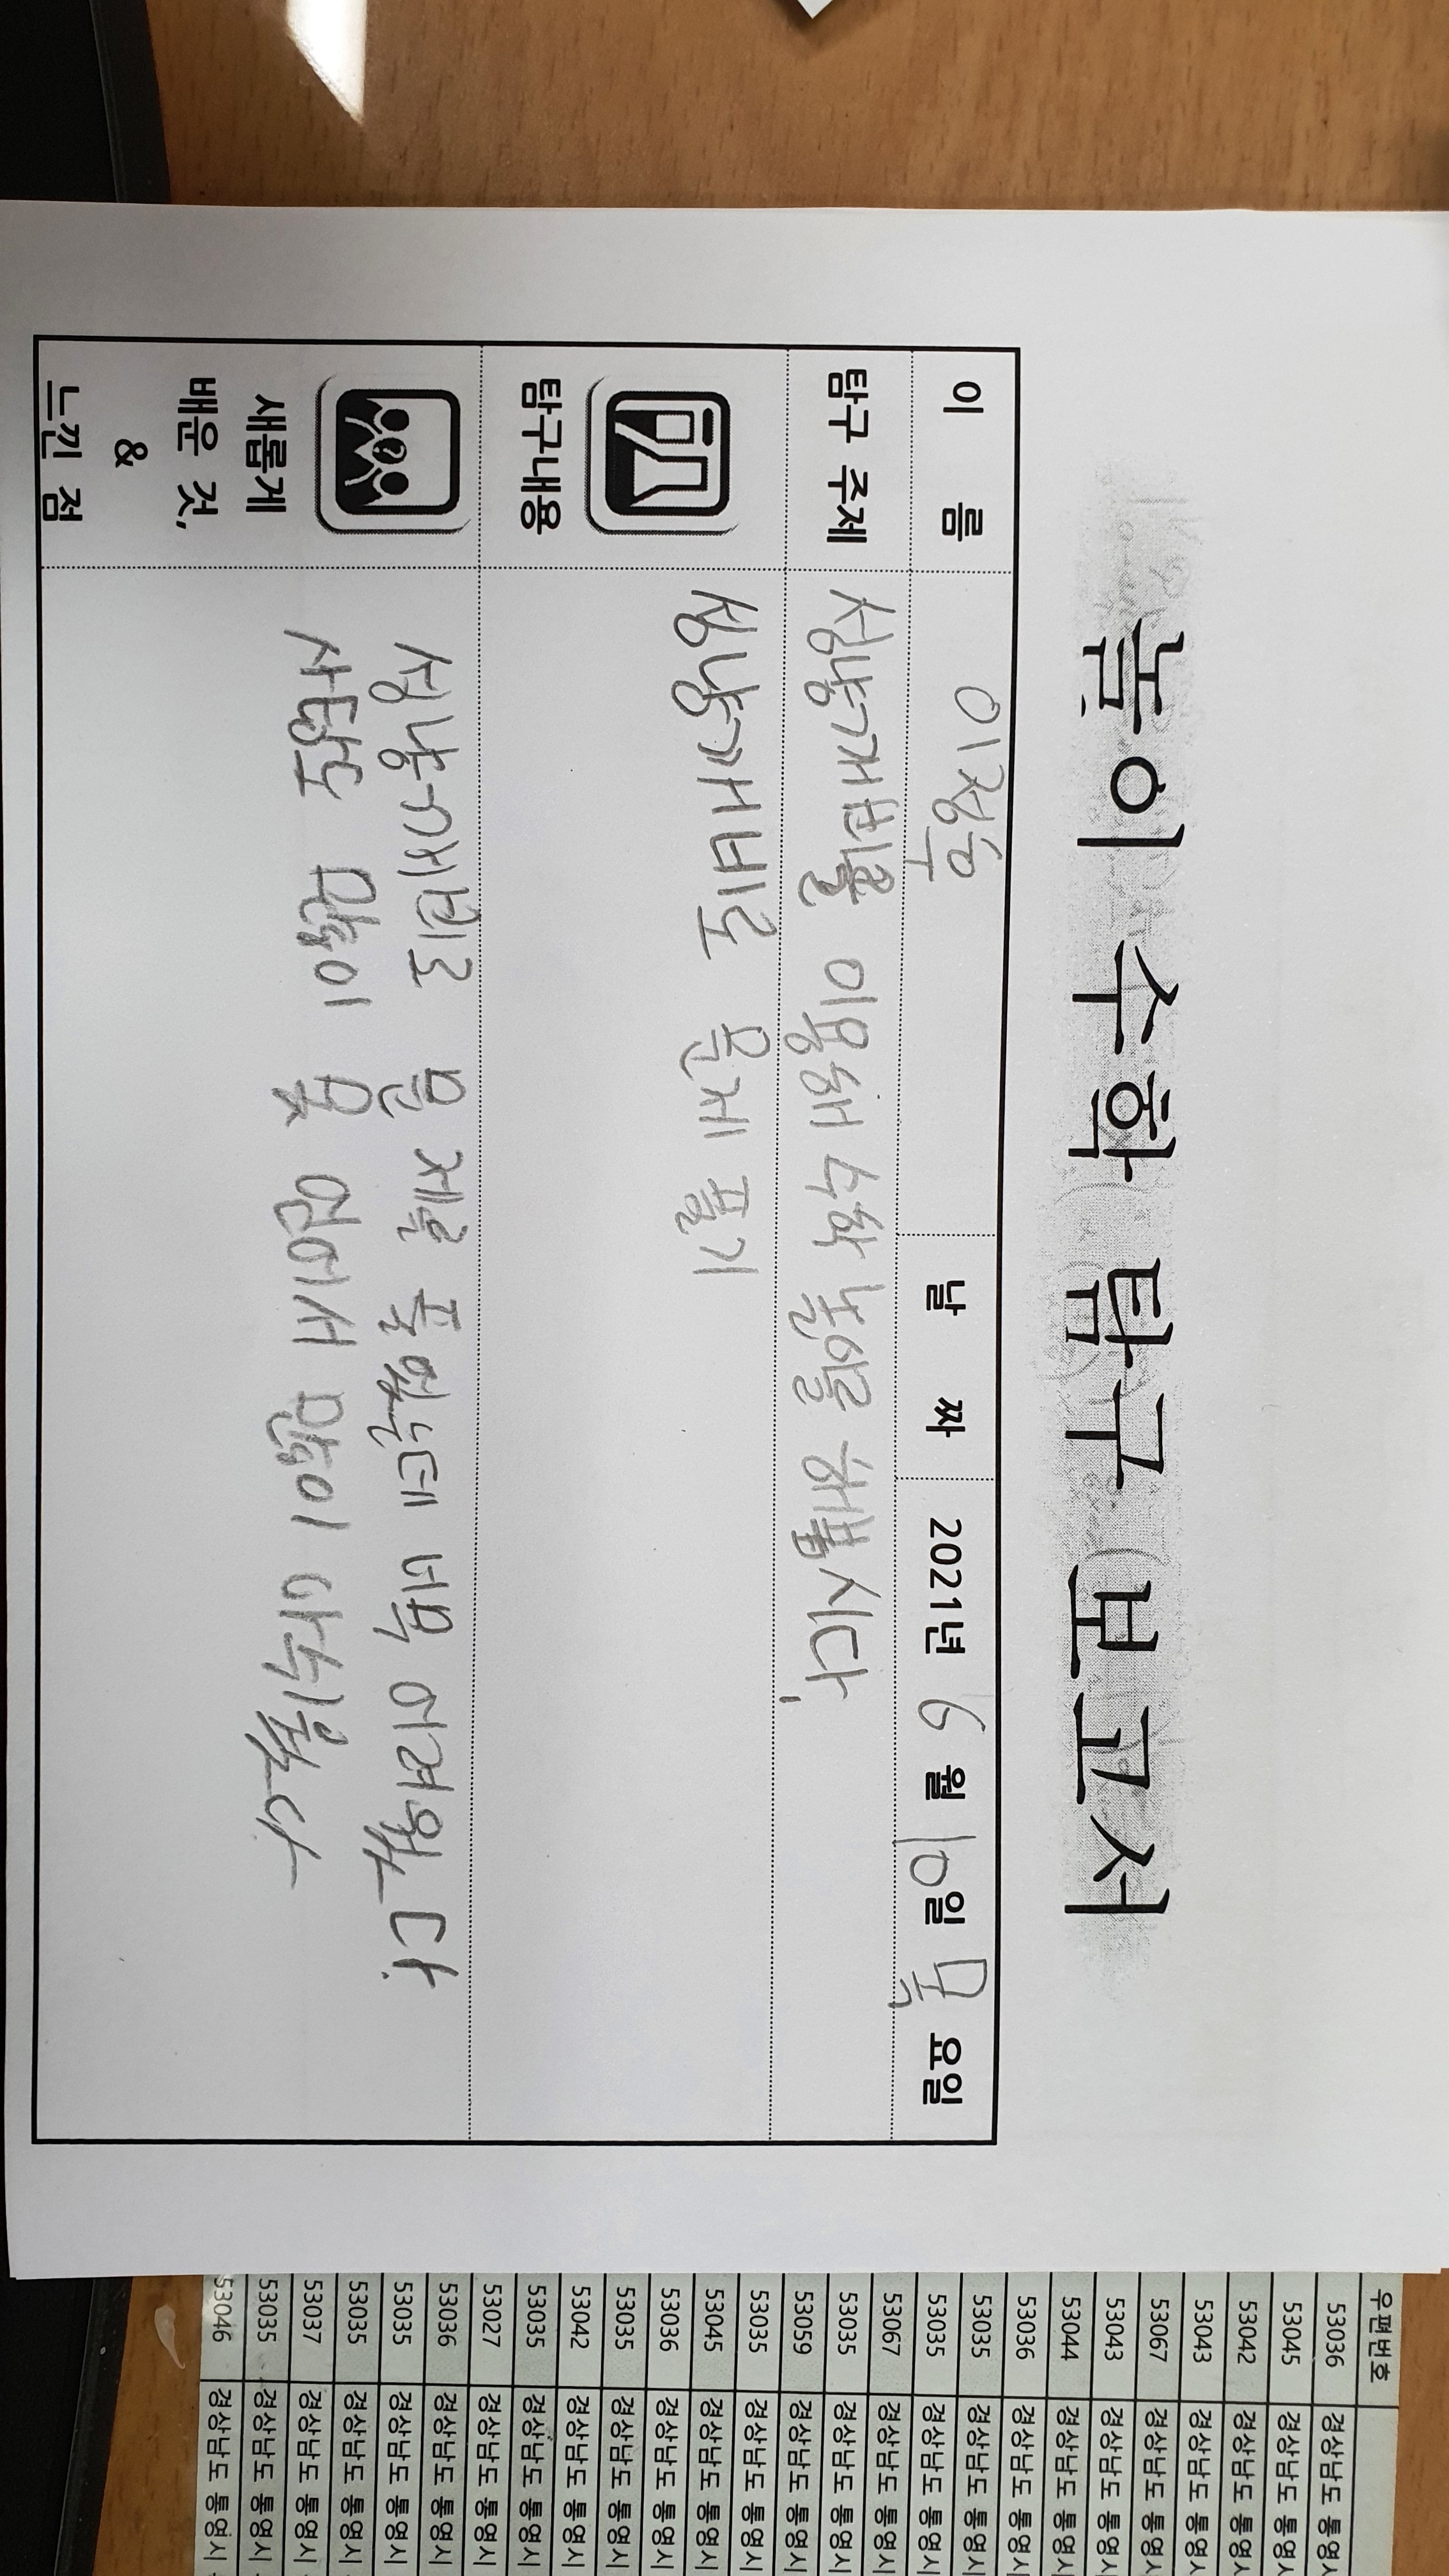 놀이 수학 탐구 보고서
이 름 이정우 날 짜 2021년 6월 10일 목요일
탐구 주제 성냥개비를 이용해 수학 놀이를 해봅시다.
탐구내용 성냥개비로 문제 풀기
새롭게
배운 것,
&
느낀 점
성냥개비로 문제를 풀었는데 너무 어려웠다.
사탕도 많이 못 얻어서 많이 아쉬웠다
우편번호
53036 경상남도 통영시
53045 경상남도 통영시
53042 경상남도 통영시
53043 경상남도 통영시
53067 경상남도 통영시
53043 경상남도 통영시
53044 경상남도 통영시
53036 경상남도 통영시
53035 경상남도 통영시
53035 경상남도 통영시
53067 경상남도 통영시
53035 경상남도 통영시
53059 경상남도 통영시
53035 경상남도 통영시
53045 경상남도 통영시
53036 경상남도 통영시
53035 경상남도 통영시
53042 경상남도 통영시
53035 경상남도 통영시
53027 경상남도 통영시
53036 경상남도 통영시
53035 경상남도 통영시
53035 경상남도 통영시
53037 경상남도 통영시
53035 경상남도 통영시
53046 경상남도 통영시